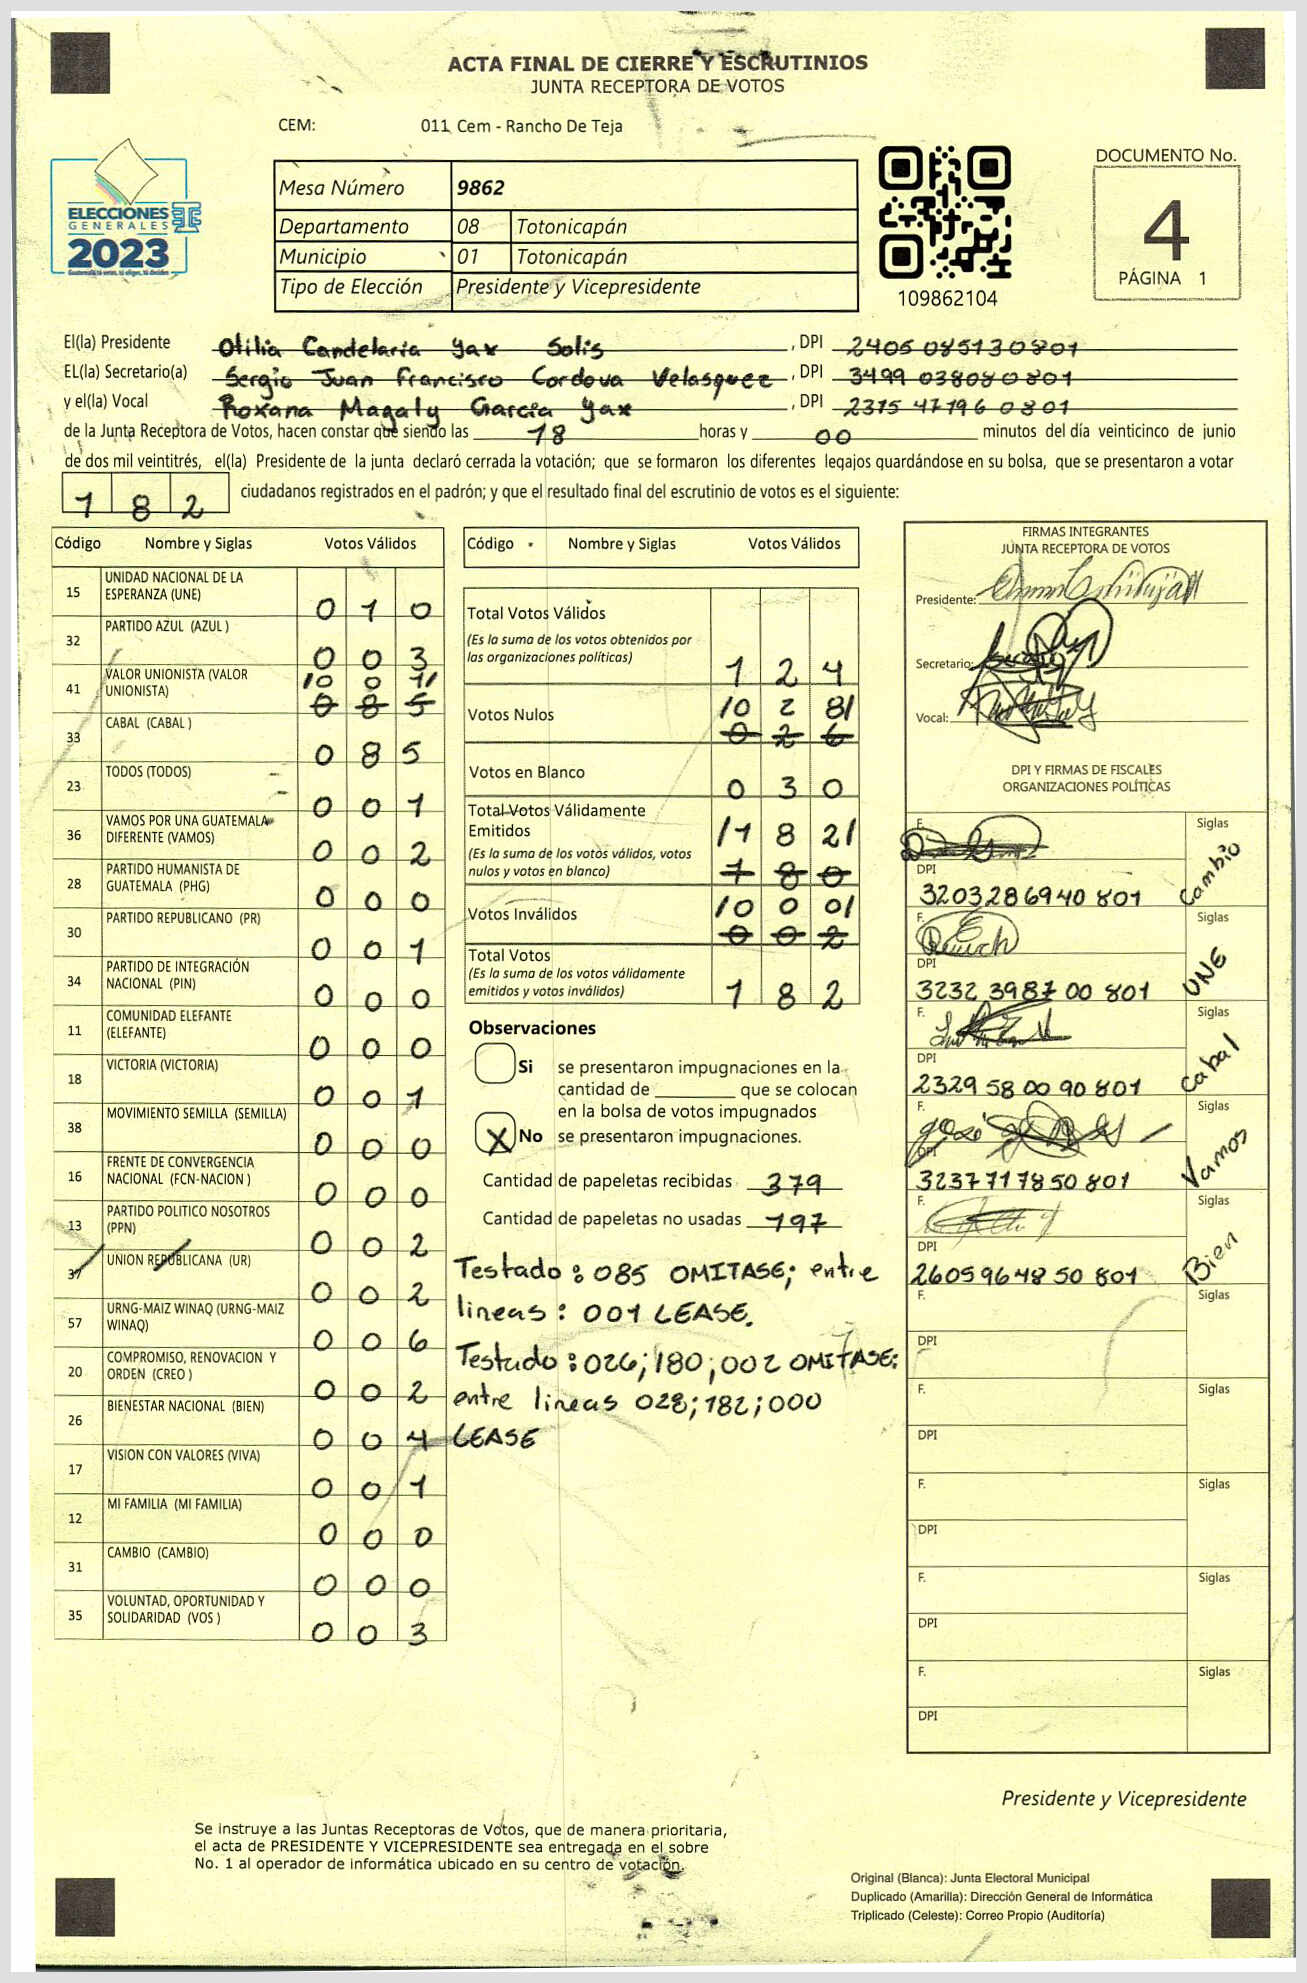 ACTA FINAL DE CIERRE Y ESCRUTINIOS
JUNTA RECEPTORA DE VOTOS
CEM: 011 Cem - Rancho De Teja
ELECCIONES
GENERALES
2023
Guatemala: tú votas, tú eliges, tú decides
Mesa Número 9862
Departamento 08 Totonicapán
Municipio 01 Totonicapán
Tipo de Elección Presidente y Vicepresidente
109862104
DOCUMENTO No.
4
PÁGINA 1
El(la) Presidente Otilia Candelaria Yax Solis , DPI 2405 08513 0801
EL(la) Secretario(a) Sergio Juan Francisco Cordova Velasquez , DPI 3499 03808 0801
y el(la) Vocal Roxana Magaly Garcia Yax , DPI 2375 47796 0801
de la Junta Receptora de Votos, hacen constar que siendo las 18 horas y 00 minutos del día veinticinco de junio
de dos mil veintitrés, el(la) Presidente de la junta declaró cerrada la votación; que se formaron los diferentes legajos quardándose en su bolsa, que se presentaron a votar
1 8 2 ciudadanos registrados en el padrón; y que el resultado final del escrutinio de votos es el siguiente:
Código Nombre y Siglas Votos Válidos
15 UNIDAD NACIONAL DE LA
ESPERANZA (UNE) 0 1 0
32 PARTIDO AZUL (AZUL ) 0 0 3
41 VALOR UNIONISTA (VALOR
UNIONISTA) /0 0 1/
0 8 5
33 CABAL (CABAL ) 0 8 5
23 TODOS (TODOS) 0 0 1
36 VAMOS POR UNA GUATEMALA
DIFERENTE (VAMOS) 0 0 2
28 PARTIDO HUMANISTA DE
GUATEMALA (PHG) 0 0 0
30 PARTIDO REPUBLICANO (PR) 0 0 1
34 PARTIDO DE INTEGRACIÓN
NACIONAL (PIN) 0 0 0
11 COMUNIDAD ELEFANTE
(ELEFANTE) 0 0 0
18 VICTORIA (VICTORIA) 0 0 1
38 MOVIMIENTO SEMILLA (SEMILLA) 0 0 0
16 FRENTE DE CONVERGENCIA
NACIONAL (FCN-NACION ) 0 0 0
13 PARTIDO POLITICO NOSOTROS
(PPN) 0 0 2
37 UNION REPUBLICANA (UR) 0 0 2
57 URNG-MAIZ WINAQ (URNG-MAIZ
WINAQ) 0 0 6
20 COMPROMISO, RENOVACION Y
ORDEN (CREO ) 0 0 2
26 BIENESTAR NACIONAL (BIEN) 0 0 4
17 VISION CON VALORES (VIVA) 0 0 1
12 MI FAMILIA (MI FAMILIA) 0 0 0
31 CAMBIO (CAMBIO) 0 0 0
35 VOLUNTAD, OPORTUNIDAD Y
SOLIDARIDAD (VOS ) 0 0 3
Código Nombre y Siglas Votos Válidos
Total Votos Válidos
(Es la suma de los votos obtenidos por
las organizaciones políticas) 1 2 4
Votos Nulos /0 2 8/
0 2 6
Votos en Blanco 0 3 0
Total Votos Válidamente
Emitidos /1 8 2/
(Es la suma de los votos válidos, votos
nulos y votos en blanco) 1 8 0
Votos Inválidos /0 0 0/
0 0 2
Total Votos
(Es la suma de los votos válidamente
emitidos y votos inválidos) 1 8 2
Observaciones
Si se presentaron impugnaciones en la
cantidad de que se colocan
en la bolsa de votos impugnados
X No se presentaron impugnaciones.
Cantidad de papeletas recibidas 379
Cantidad de papeletas no usadas 197
Testado: 085 OMITASE; entre
lineas: 001 LEASE.
Testado: 026; 180; 002 OMITASE:
entre lineas 028; 182; 000
LEASE
FIRMAS INTEGRANTES
JUNTA RECEPTORA DE VOTOS
Presidente:
Secretario:
Vocal:
DPI Y FIRMAS DE FISCALES
ORGANIZACIONES POLÍTICAS
F. Siglas
DPI Cambio
3203286940 801
F. Siglas
DPI UNE
3232 3987 00 801
F. Siglas
DPI Cabal
2329 58 00 90 801
F. Siglas
DPI Vamos
3237717850 801
F. Siglas
DPI Bien
2605964850 801
F. Siglas
DPI
F. Siglas
DPI
F. Siglas
DPI
F. Siglas
DPI
F. Siglas
DPI
Presidente y Vicepresidente
Se instruye a las Juntas Receptoras de Votos, que de manera prioritaria,
el acta de PRESIDENTE Y VICEPRESIDENTE sea entregada en el sobre
No. 1 al operador de informática ubicado en su centro de votación.
Original (Blanca): Junta Electoral Municipal
Duplicado (Amarilla): Dirección General de Informática
Triplicado (Celeste): Correo Propio (Auditoría)